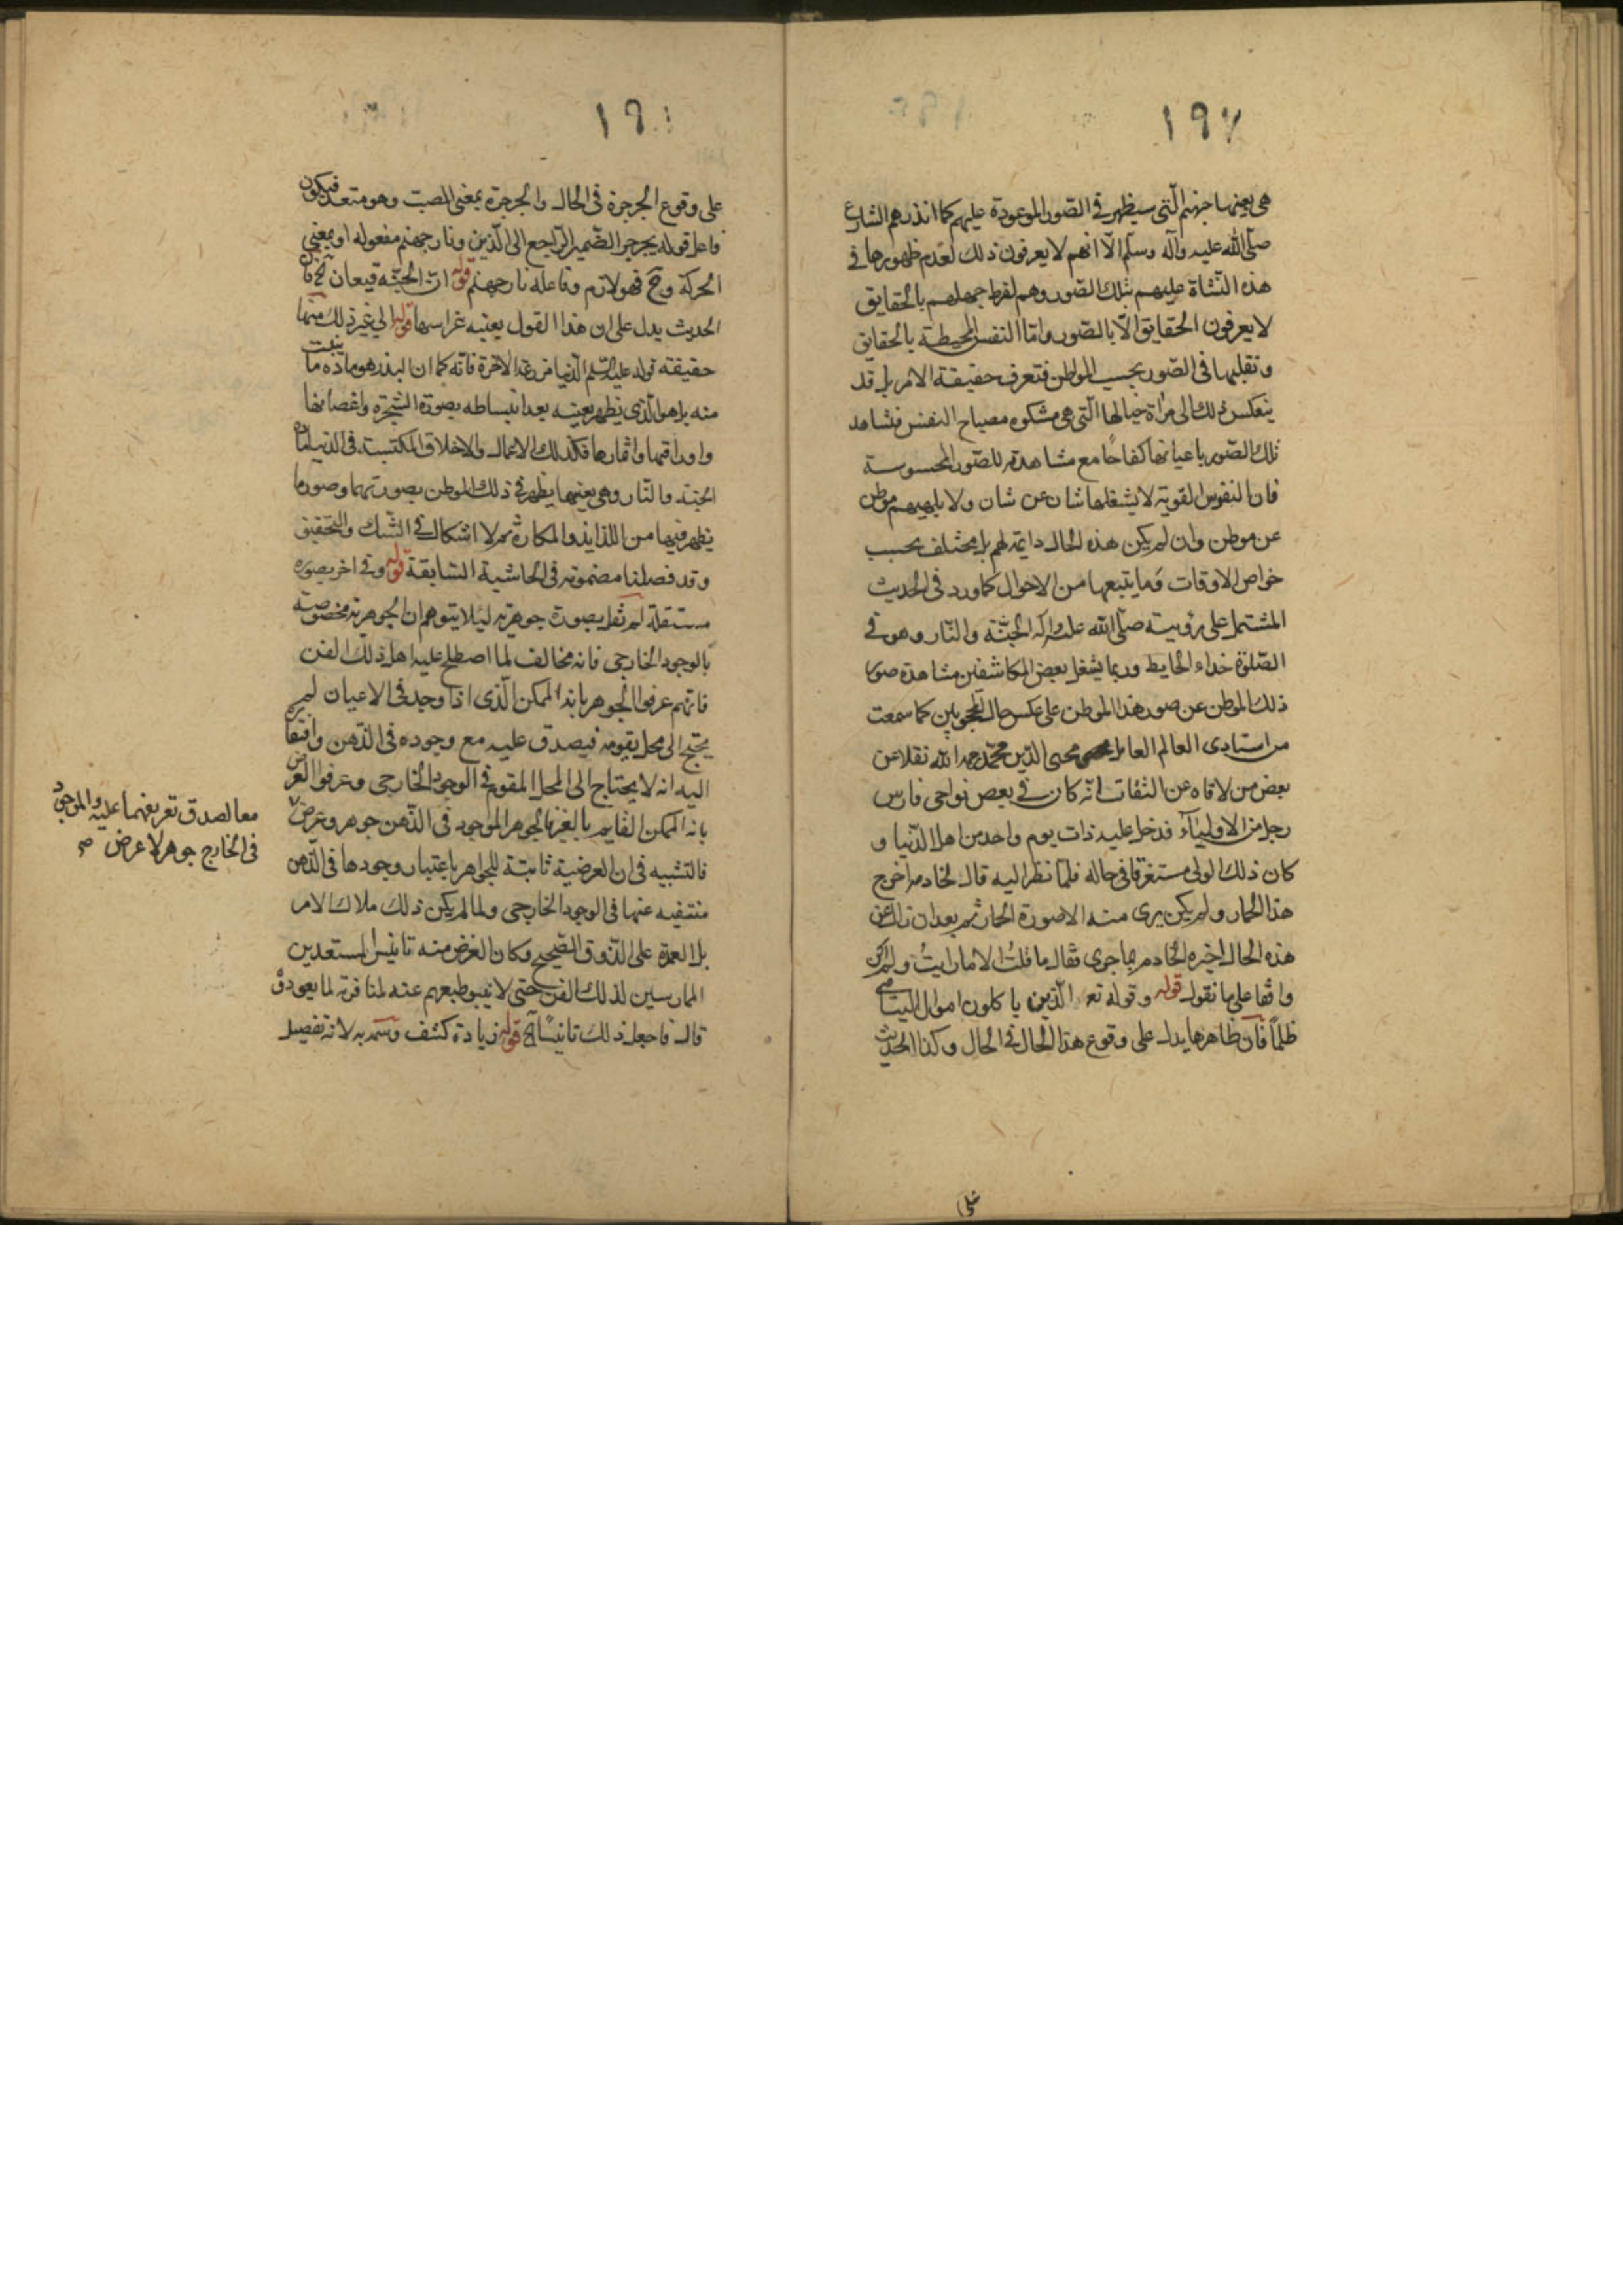 ١٩٧
هی بعینها جهنم الّتی سیظهر فی الصّور الموعودة علیهم کما انذرهم الشارع
صلّی الله علیه وآله وسلّم الّا انهم لا یعرفون ذلك لعدم ظهورها فی
هذه النّشاة علیهم بتلك الصّور وهم لفرط جهلهم بالحقایق
لا یعرفون الحقایق الّا بالصّور وامّا النفس المحیطة بالحقایق
وتقلبها فی الصّور بحسب المواطن فتعرف حقیقة الامر بل قد
ینعکس ذلك الی مرآة خیالها الّتی هی مشکوه مصباح النفس فتشاهد
تلك الصّور باعیانها کفاحًا مع مشاهدته للصّور المحسوسة
فان النفوس القویة لا یشغلها شان عن شان ولا یلهیهم موطن
عن موطن وان لم یکن هذه الحال دایمة لهم بل یختلف بحسب
خواص الاوقات وما یتبعها من الاحوال کما ورد فی الحدیث
المشتمل علی رؤیته صلّی الله علیه وآله الجنّة والنّار وهو فی
الصّلوة حذاء الحایط وربما یشغل بعض المکاشفین مشاهدة صور
ذلك الموطن عن صور هذا الموطن علی عکس حال المحجوبین کما سمعت
من استادی العالم العامل محیی الدّین محمّد رحمه الله نقلا عن
بعض من لاقاه عن الثقات انّه کان فی بعض نواحی فارس
رجل من الاولیآء فدخل علیه ذات یوم واحد من اهل الدّنیا و
کان ذلك الولی مستغرقا فی حاله فلمّا نظر الیه قال لخادمه اخرج
هذا الحمار ولم یکن یری منه الا صورة الحمار ثم بعد ان زال عن
هذه الحال اخبره الخادم بما جری فقال ما قلتُ الا ما رایتُ ولم اکن
واقفا علی ما نقول قوله وقوله تع الّذین یاکلون اموال الیتامی
ظلمًا فان ظاهرها یدل علی وقوع هذا الحال فی الحال وکذا الحدیث
١٩
علی وقوع الجرجرة فی الحال والجرجرة بمعنی الصبّ وهو متعد فیکون
فاعل قوله یجرجر الضّمیر الرّاجع الی الّذین ونار جهنم مفعوله او بمعنی
الحرکة وح فهو لازم وفاعله نار جهنم قوله ان الجنّة قیعان آلخ فان
الحدیث یدل علی ان هذا القول بعینه غراسها قوله الی غیر ذلك منها
حقیقة قوله علیه السّلم الدّنیا مزرعة الاخرة فانّه کما ان البذر هو مادّه ما ینبت
منه بل هو الّذی یظهر بعینه بعد انبساطه بصورة الشّجرة واغصانها
واوراقها واثمارها فکذلك الاعمال والاخلاق المکتسبة فی الدّنیا مادّة
الجنة والنّار وهی بعینها یظهر فی ذلك الموطن بصورتهما وصور ما
یظهر فیها من اللذایذ والمکاره ثم لا اشکال فی الشّك والتحقیق
وقد فصلنا مضمونه فی الحاشیة السّابقة قوله وفی اخر بصوره
مستقلة لم یقل بصورة جوهریة لیلا یتوهم ان الجوهریة مخصوصة
بالوجود الخارجی فانه مخالف لما اصطلح علیه اهل ذلك الفن
فانّهم عرفوا الجوهر بانه الممکن الّذی اذا وجد فی الاعیان لم
یحتج الی محل یقومه فیصدق علیه مع وجوده فی الذهن وافتقاره
الیه انه لا یحتاج الی المحل المقوم فی الوجود الخارجی وعرفوا العرض
بانه الممکن القایم بالغیر فالجوهر الموجود فی الذّهن جوهر وعرض
معا لصدق تعریفهما علیه والموجود
فی الخارج جوهر لا عرض صح
فالتشبیه فی ان العرضیة ثابتة للجواهر باعتبار وجودها فی الذّهن
منتفیه عنها فی الوجود الخارجی ولما لم یکن ذلك ملاك الامر
بل العمدة علی الذّوق الصّحیح وکان الغرض منه تانیس المستعدین
الممارسین لذلك الفن حتی لا ینبو طبعهم عنه لمنافرته لما یعودو
قال فاجعل ذلك تانیسًا آلخ قوله زیادة کشف وسمه به لانه تفصیل